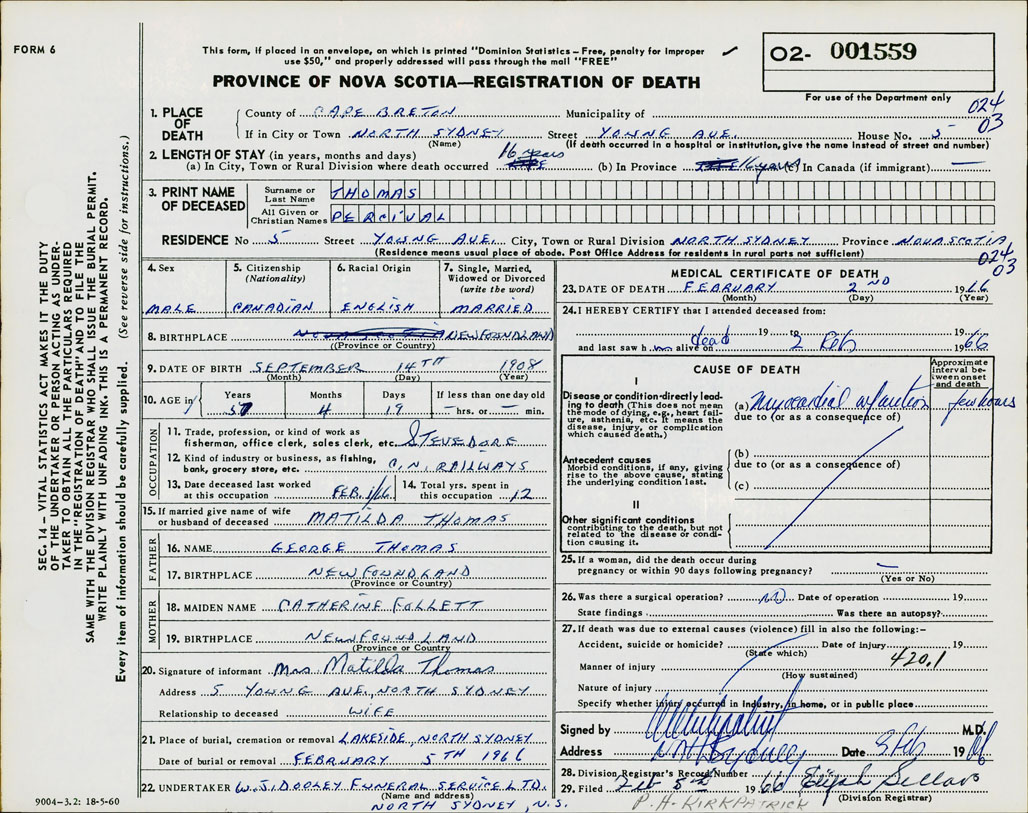 FORM 6
This form, if placed in an envelope, on which is printed "Dominion Statistics – Free, penalty for improper
use $50," and properly addressed will pass through the mail "FREE"
02- 001559
For use of the Department only
PROVINCE OF NOVA SCOTIA—REGISTRATION OF DEATH
024
03
1. PLACE OF DEATH
County of CAPE BRETON Municipality of
If in City or Town NORTH SYDNEY Street YOUNG AVE. House No. 5
(Name) (If death occurred in a hospital or institution, give the name instead of street and number)
2. LENGTH OF STAY (in years, months and days)
(a) In City, Town or Rural Division where death occurred 16 years (b) In Province 16 years (c) In Canada (if immigrant) —
3. PRINT NAME OF DECEASED
Surname or Last Name THOMAS
All Given or Christian Names PERCIVAL
RESIDENCE No 5 Street YOUNG AVE. City, Town or Rural Division NORTH SYDNEY Province NOVA SCOTIA
(Residence means usual place of abode. Post Office Address for residents in rural parts not sufficient)
024
03
SEC. 14 – VITAL STATISTICS ACT MAKES IT THE DUTY
OF THE UNDERTAKER OR PERSON ACTING AS UNDER-
TAKER TO OBTAIN ALL THE PARTICULARS REQUIRED
IN THE "REGISTRATION OF DEATH" AND TO FILE THE
SAME WITH THE DIVISION REGISTRAR WHO SHALL ISSUE THE BURIAL PERMIT.
WRITE PLAINLY WITH UNFADING INK. THIS IS A PERMANENT RECORD.
Every item of information should be carefully supplied. (See reverse side for instructions.)
4. Sex 5. Citizenship (Nationality) 6. Racial Origin 7. Single, Married, Widowed or Divorced (write the word)
MALE CANADIAN ENGLISH MARRIED
8. BIRTHPLACE NEWFOUNDLAND
(Province or Country)
9. DATE OF BIRTH SEPTEMBER 14TH 1908
(Month) (Day) (Year)
10. AGE in Years Months Days If less than one day old
57 4 19 — hrs. or — min.
OCCUPATION
11. Trade, profession, or kind of work as
fisherman, office clerk, sales clerk, etc. STEVEDORE
12. Kind of industry or business, as fishing,
bank, grocery store, etc. C.N. RAILWAYS
13. Date deceased last worked at this occupation FEB. 1/66 14. Total yrs. spent in this occupation 12
15. If married give name of wife
or husband of deceased MATILDA THOMAS
FATHER
16. NAME GEORGE THOMAS
17. BIRTHPLACE NEWFOUNDLAND
(Province or Country)
MOTHER
18. MAIDEN NAME CATHERINE FOLLETT
19. BIRTHPLACE NEWFOUNDLAND
(Province or Country)
20. Signature of informant Mrs. Matilda Thomas
Address 5 YOUNG AVE., NORTH SYDNEY
Relationship to deceased WIFE
21. Place of burial, cremation or removal LAKESIDE, NORTH SYDNEY
Date of burial or removal FEBRUARY 5TH 1966
22. UNDERTAKER W.J. DOOLEY FUNERAL SERVICE LTD.
(Name and address)
NORTH SYDNEY, N.S.
9004–3.2: 18-5-60
MEDICAL CERTIFICATE OF DEATH
23. DATE OF DEATH FEBRUARY 2ND 1966
(Month) (Day) (Year)
24. I HEREBY CERTIFY that I attended deceased from:
19 to
and last saw him alive on dead 2 Feb 1966
CAUSE OF DEATH
Approximate interval between onset and death
I
Disease or condition directly leading to death (This does not mean the mode of dying, e.g., heart failure, asthenia, etc. It means the disease, injury, or complication which caused death.)
(a) Myocardial infarction few hours
due to (or as a consequence of)
Antecedent causes
Morbid conditions, if any, giving rise to the above cause, stating the underlying condition last.
(b)
due to (or as a consequence of)
(c)
II
Other significant conditions
contributing to the death, but not related to the disease or condition causing it.
25. If a woman, did the death occur during
pregnancy or within 90 days following pregnancy? —
(Yes or No)
26. Was there a surgical operation? no Date of operation 19
State findings Was there an autopsy?
27. If death was due to external causes (violence) fill in also the following:–
Accident, suicide or homicide? Date of injury 19
(State which) 420.1
Manner of injury
(How sustained)
Nature of injury
Specify whether injury occurred in industry, in home, or in public place
Signed by M.D.
Address Date Feb 1966
28. Division Registrar's Record Number
29. Filed Feb 5th 1966 Elijah Sellars
(Division Registrar)
P. H. KIRKPATRICK